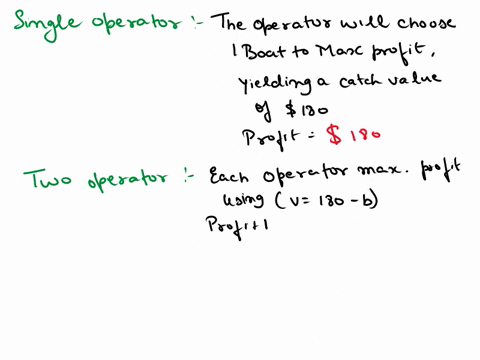 Single operator :- The operator will choose
1 Boat to Max profit,
yielding a catch value
of $180
Profit = $180
Two operator :- Each operator max. profit
using (v = 180 - b)
Profit 1